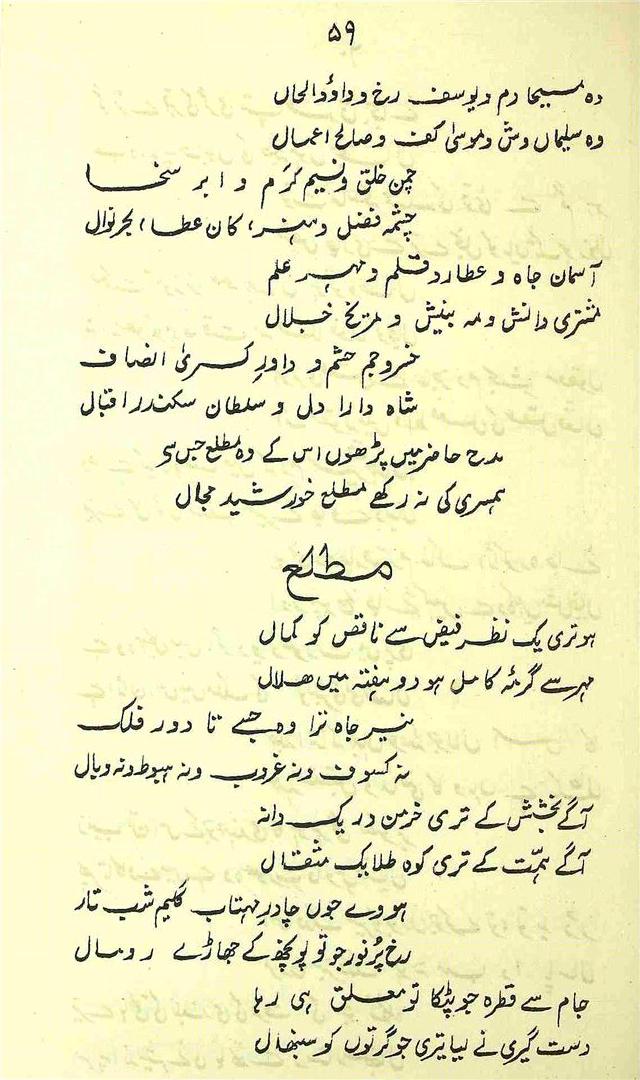 ۵۹
وہ مسیحا دم و یوسف رخ و داؤد الحاں
وہ سلیماں وش و موسیٰ کف و صالح اعمال
چمن خلق و نسیم کرم و ابر سخا
چشمہ فضل و ہنر، کان عطا، بحر نوال
آسمان جاہ و عطارد قلم و مہر علم
مشتری دانش و مہ بینش و مریخ جلال
خسرو جم حشم و داورِ کسریٰ انصاف
شاہ دارا دل و سلطان سکندر اقبال
مدح حاضر میں پڑھوں اس کے وہ مطلع جس سے
ہمسری کی نہ رکھے مطلع خورشید مجال
مطلع
ہو تری یک نظر فیض سے ناقص کو کمال
مہر سے گرنہ کامل ہو دو ہفتہ میں ہلال
نیر جاہ ترا وہ جسے تا دور فلک
نہ کسوف و نہ غروب و نہ ہبوط و نہ وبال
آگے بخشش کے تری خرمن در یک دانہ
آگے ہمّت کے تری کوہ طلا یک مثقال
ہووے جوں چادرِ مہتاب گلیم شب تار
رخ پُر نور جو تو پونچھ کے جھاڑے رومال
جام سے قطرہ جو ٹپکا تو معلق ہی رہا
دست گیری نے لیا تیری جو گرتوں کو سنبھال